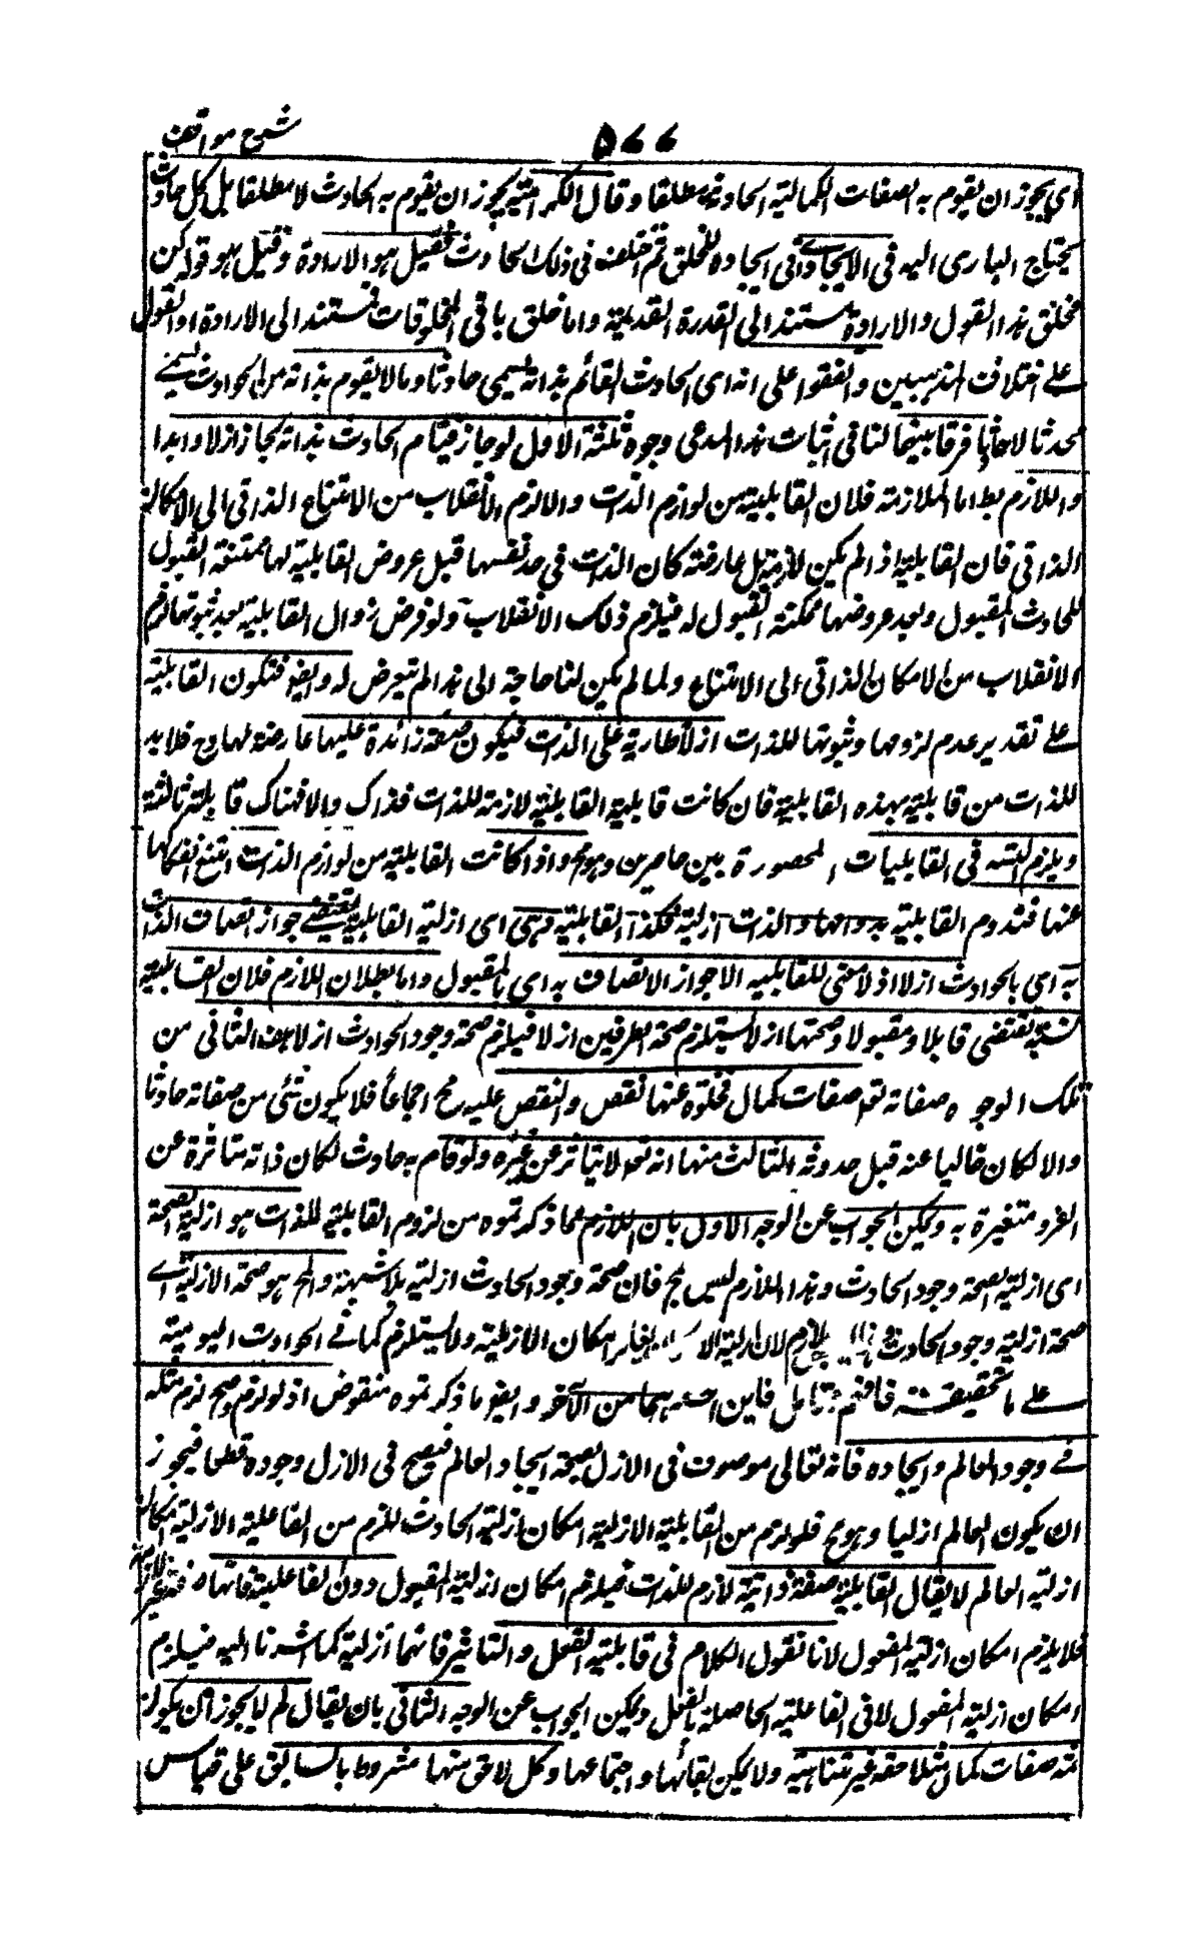 شرح مواقف
۵۷۷
اى يجوز ان يقوم به الصفات الكمالية الحادثة مطلقا وقال الكرامية يجوز ان يقوم به الحادث لا مطلقا بل كل حادث
يحتاج البارى اليه فى الايجاد اى فى ايجاده للخلق ثم اختلفوا فى ذلك الحادث فقيل هو الارادة وقيل هو قوله كن
فخلق هذا القول والارادة مستند الى القدرة القديمة واما خلق باقى المخلوقات فمستند الى الارادة او القول
على اختلاف المذهبين واتفقوا على انه اى الحادث القائم بذاته يسمى حادثا وما لا يقوم بذاته من الحوادث يسمى
محدثا لا حادثا فرقا بينهما لنا فى اثبات هذا المدعى وجوه ثلثة الاول لو جاز قيام الحادث بذاته لجاز ازلا وابدا
واللازم بط اما الملازمة فلان القابلية من لوازم الذات والا لزم الانقلاب من الامتناع الذاتى الى الامكان
الذاتى فان القابلية اذا لم يكن لازمة بل عارضة كان الذات فى حد نفسها قبل عروض القابلية لها ممتنعة القبول
للحادث المقبول وبعد عروضها ممكنة القبول له فيلزم ذلك الانقلاب ولو فرض زوال القابلية بعد ثبوتها لزم
الانقلاب من الامكان الذاتى الى الامتناع ولما لم يكن لنا حاجة الى هذا لم نتعرض له وايضا فتكون القابلية
على تقدير عدم لزومها وثبوتها للذات ازلا طارية على الذات فيكون صفة زائدة عليها عارضة لها وح فلا بد
للذات من قابلية بهذه القابلية فان كانت قابلية القابلية لازمة للذات فذاك والا فهناك قابلية ثالثة
ويلزم التسه فى القابليات المحصورة بين حاصرين وهو مح واذا كانت القابلية من لوازم الذات امتنع انفكاكها
عنها فتدوم القابلية بدوامها والذات ازلية فكذا القابلية وهى اى ازلية القابلية يقتضى جواز اتصاف الذات
به اى بالحوادث ازلا اذ لا معنى للقابلية الا جواز الاتصاف به اى بالمقبول واما بطلان اللازم فلان القابلية
نسبة تقتضى قابلا ومقبولا وصحتها ازلا يستلزم صحة الطرفين ازلا فيلزم صحة وجود الحوادث ازلا هف الثانى من
تلك الوجوه صفاته تعم صفات كمال فخلوه عنها نقص والنقص عليه مح اجماعا فلا يكون شئ من صفاته حادثا
والا لكان خاليا عنه قبل حدوثه الثالث منها انه تعم لا يتاثر عن غيره ولو قام به حادث لكان ذاته متاثرة عن
الغير ومتغيرة به ويمكن الجواب عن الوجه الاول بان اللازم مما ذكرتموه من لزوم القابلية للذات هو ازلية الصحة
اى ازلية صحة وجود الحادث وهذا اللازم ليس بمح فان صحة وجود الحادث ازلية بلا شبهة والمح هو صحة الازلية اى
صحة ازلية وجود الحادث بلازم لان ازلية الا يغاير امكان الازلية ولا يستلزم كما فى الحوادث اليومية
على ما تحقيقه فاين احدهما من الآخر وايضا ما ذكرتموه منقوض اذ لو لزم وصح لزم مثله
فى وجود العالم وايجاده فانه تعالى موصوف فى الازل بصحة ايجاد العالم فيصح فى الازل وجوده قطعا فيجوز
ان يكون العالم ازليا وهو مح فلو لزم من القابلية الازلية امكان ازلية الحادث للزم من الفاعلية الازلية امكان
ازلية العالم لا يقال القابلية صفة ذاتية لازم للذات فيلزم امكان ازلية المقبول دون الفاعلية فانها صفة غير لازمة
فلا يلزم امكان ازلية المفعول لانا نقول الكلام فى قابلية الفعل والتاثير فانها ازلية كما اشرنا اليه فيلزم
امكان ازلية المفعول لا فى الفاعلية الحاصلة بالفعل ويمكن الجواب عن الوجه الثانى بان يقال لم لا يجوز ان يكون
ثمه صفات كمال متلاحقة غير متناهية ولا يمكن بقائها واجتماعها وكل لاحق منها مشروط بالسابق على قياس